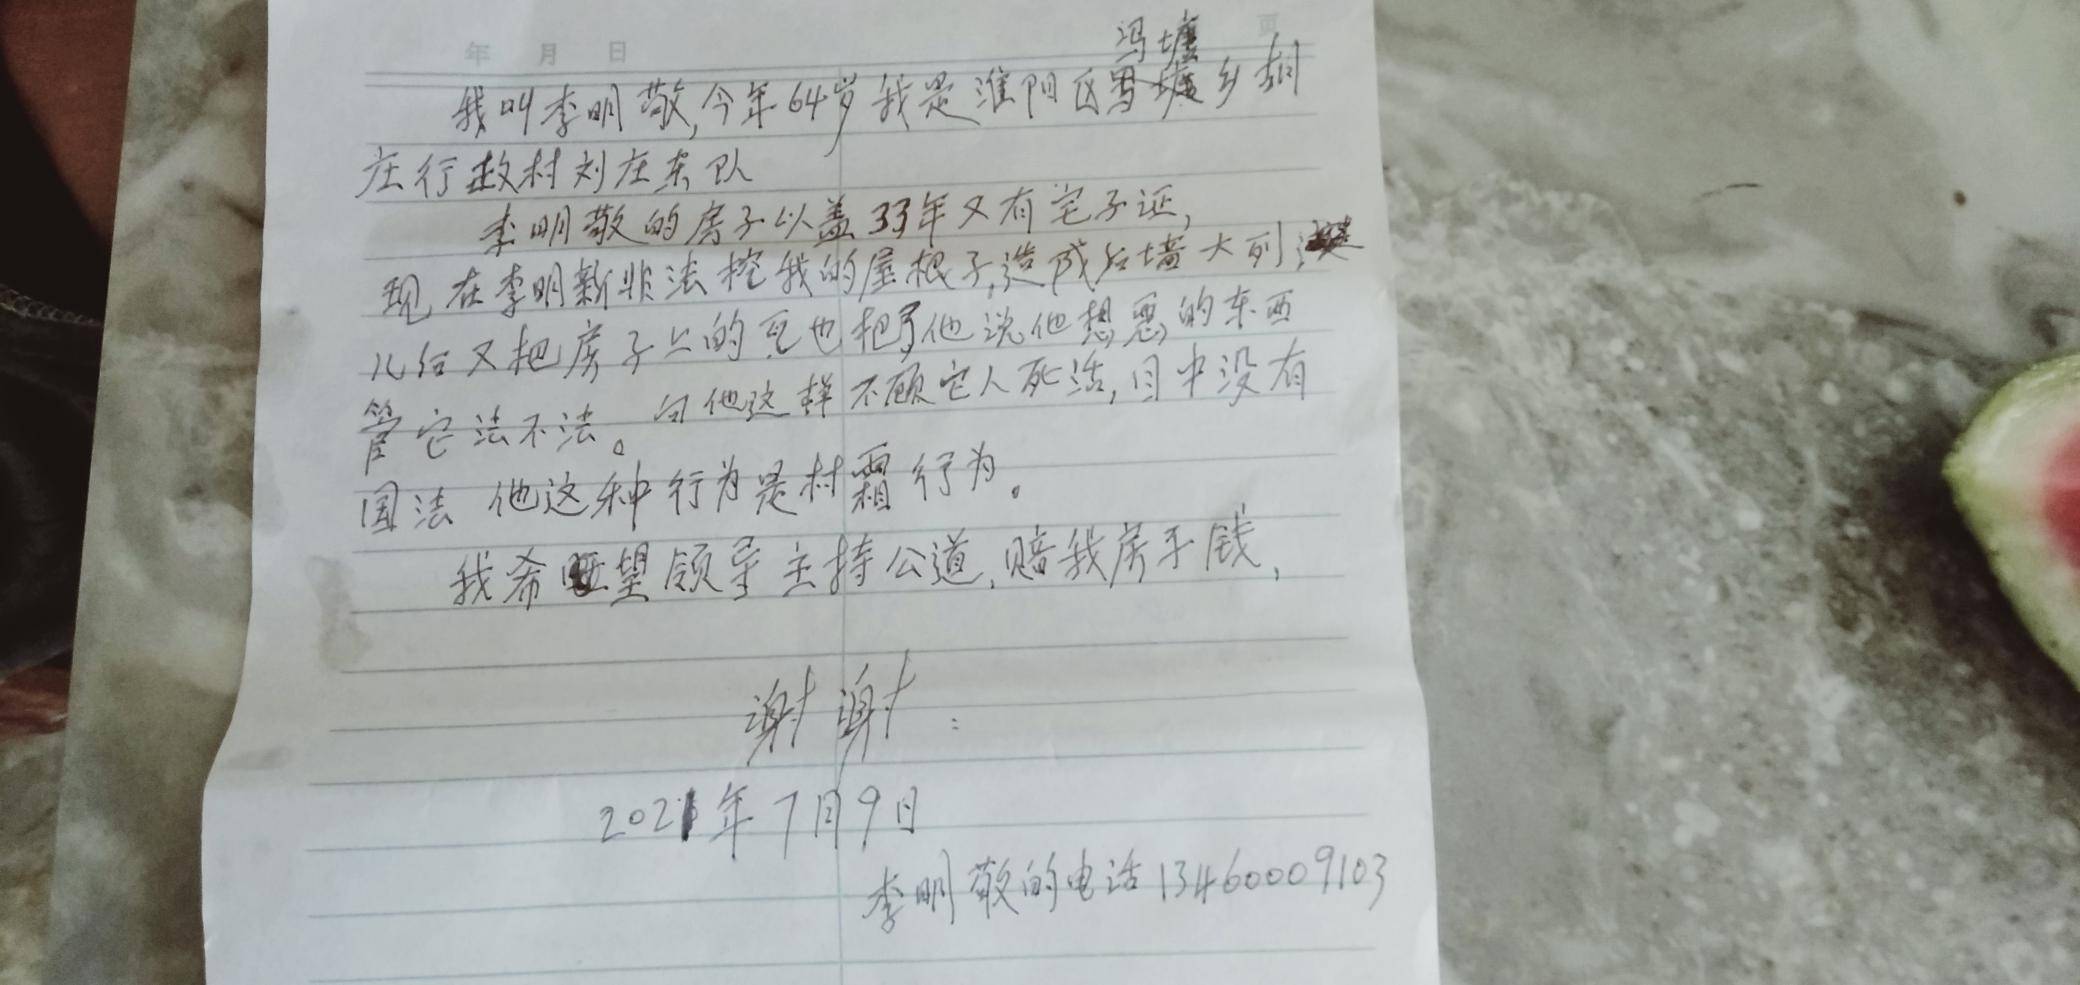 年 月 日
页
冯塘
我叫李明敬,今年64岁我是淮阳区冯塘乡胡
庄行政村刘庄东队
李明敬的房子以盖33年又有宅子证,
现在李明新非法挖我的屋根子,造成后墙大列
儿后又把房子上的瓦也扒了他说他想要的东西
管它法不法。向他这样不顾它人死活,目中没有
国法 他这种行为是村霜行为。
我希望领导主持公道,赔我房子钱,
谢谢:
2021年7月9日
李明敬的电话13460009103